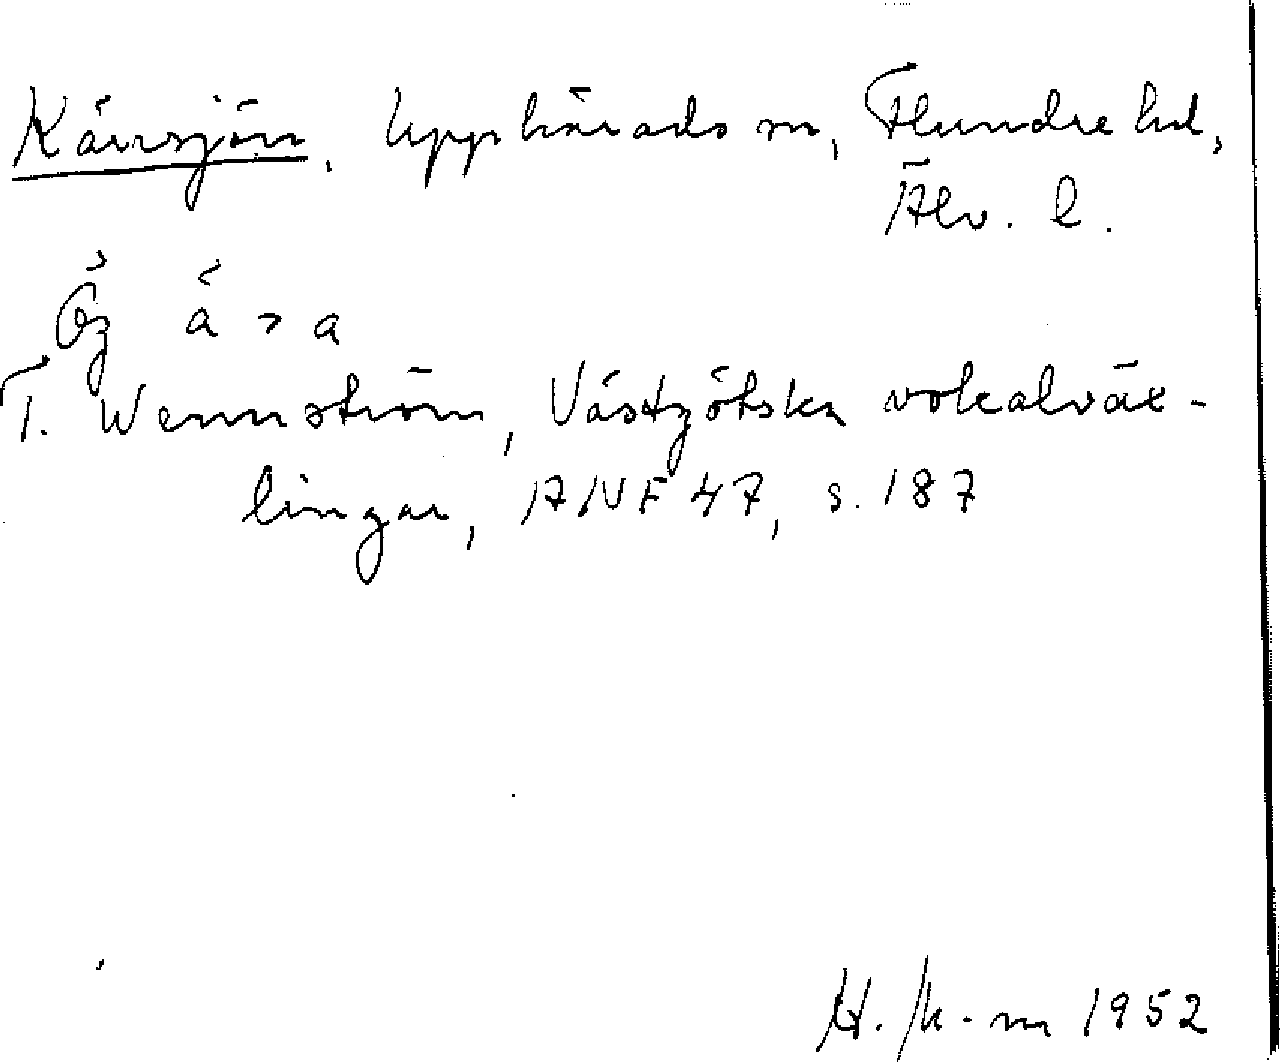 Kärrsjön, Upphärads sn, Flundre hd,
Älv. l.
Övg ä > a
T. Wennström, Västgötska vokalväx-
lingar, ANF 47, s. 187
1952